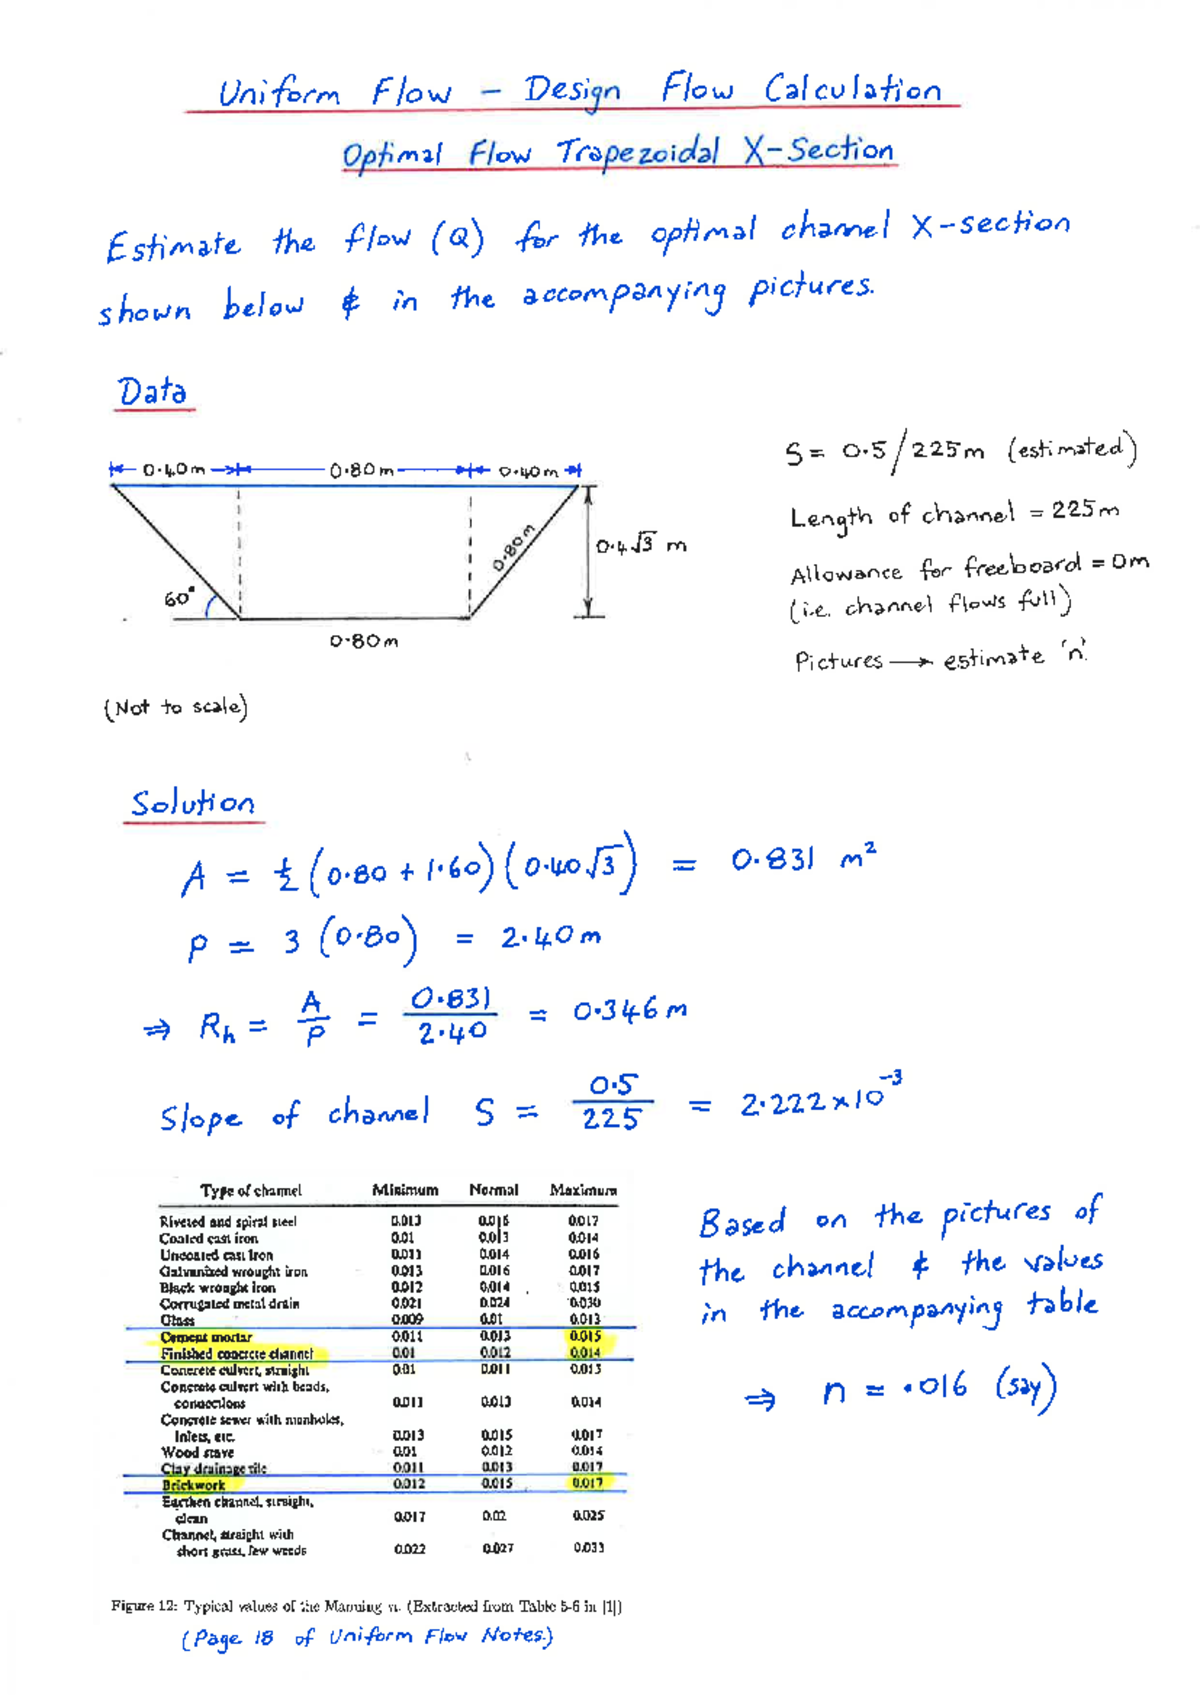 Uniform Flow – Design Flow Calculation
Optimal Flow Trapezoidal X-Section
Estimate the flow (Q) for the optimal channel X-section
shown below & in the accompanying pictures.
Data
0.40m 0.80m 0.40m
0.80m
0.4√3 m
60°
0.80m
(Not to scale)
S = 0.5/225m (estimated)
Length of channel = 225m
Allowance for freeboard = 0m
(i.e. channel flows full)
Pictures → estimate 'n'.
Solution
A = ½ (0.80 + 1.60)(0.40√3) = 0.831 m²
P = 3 (0.80) = 2.40m
⇒ Rh = A/P = 0.831/2.40 = 0.346m
Slope of channel S = 0.5/225 = 2.222×10⁻³
Type of channel Minimum Normal Maximum
Riveted and spiral steel 0.013 0.016 0.017
Coated cast iron 0.01 0.013 0.014
Uncoated cast iron 0.011 0.014 0.016
Galvanized wrought iron 0.013 0.016 0.017
Black wrought iron 0.012 0.014 0.015
Corrugated metal drain 0.021 0.024 0.030
Glass 0.009 0.01 0.013
Cement mortar 0.011 0.013 0.015
Finished concrete channel 0.01 0.012 0.014
Concrete culvert, straight 0.01 0.011 0.013
Concrete culvert with bends,
connections 0.011 0.013 0.014
Concrete sewer with manholes,
Inlets, etc. 0.013 0.015 0.017
Wood stave 0.01 0.012 0.014
Clay drainage tile 0.011 0.013 0.017
Brickwork 0.012 0.015 0.017
Earthen channel, straight,
clean 0.017 0.02 0.025
Channel, straight with
short grass, few weeds 0.022 0.027 0.033
Based on the pictures of
the channel & the values
in the accompanying table
⇒ n = .016 (say)
Figure 12: Typical values of the Manning n. (Extracted from Table 5-6 in [1])
(Page 18 of Uniform Flow Notes.)